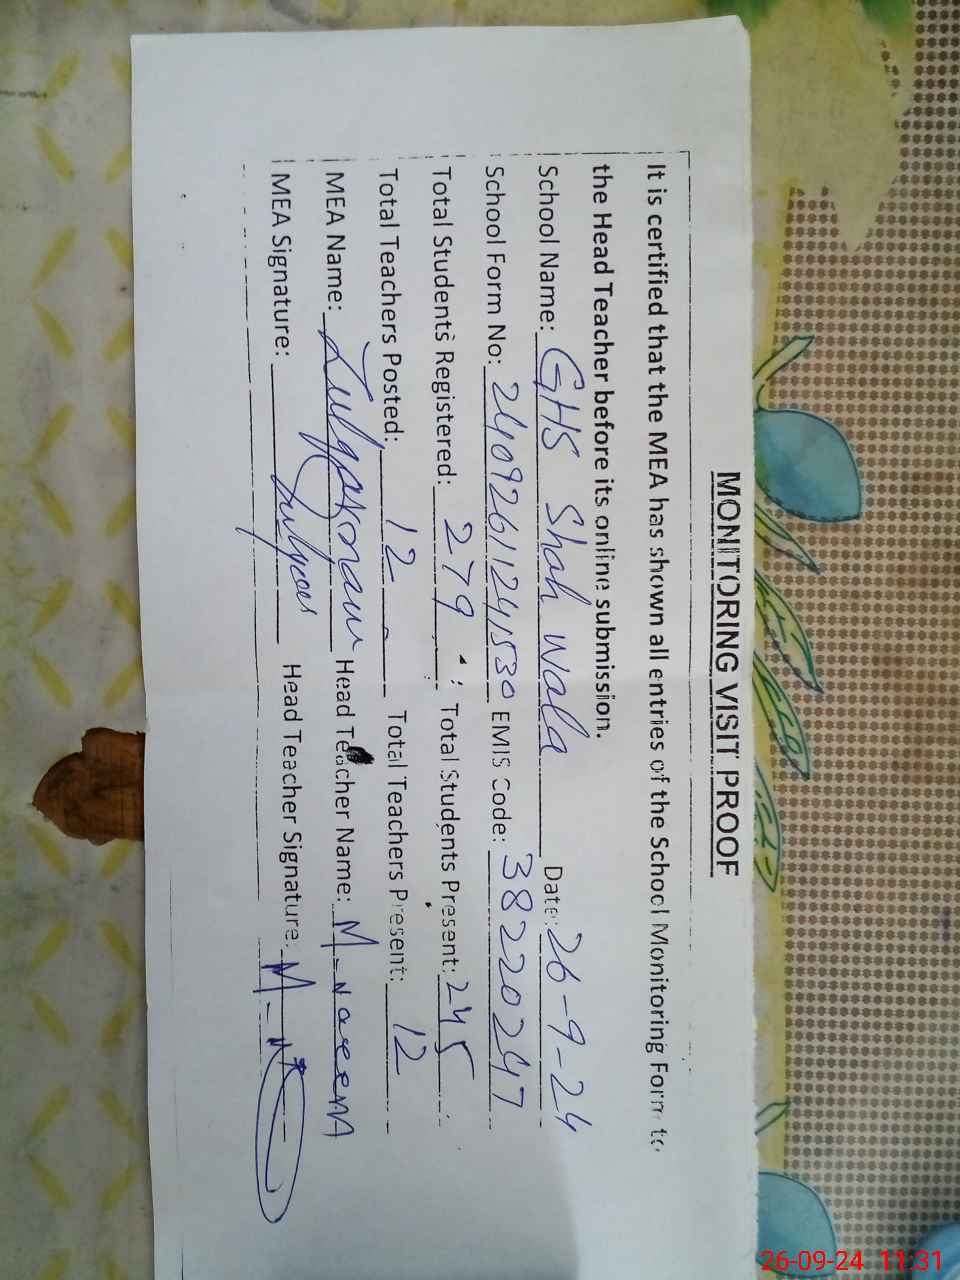 MONITORING VISIT PROOF
It is certified that the MEA has shown all entries of the School Monitoring Form to
the Head Teacher before its online submission.
School Name: GHS Shah Wala Date: 26-9-24
School Form No: 240926112411530 EMIS Code: 38220247
Total Students Registered: 279 Total Students Present: 245
Total Teachers Posted: 12 Total Teachers Present: 12
MEA Name: Head Teacher Name: M-Naeem
MEA Signature: Head Teacher Signature: M-N
26-09-24 11:31